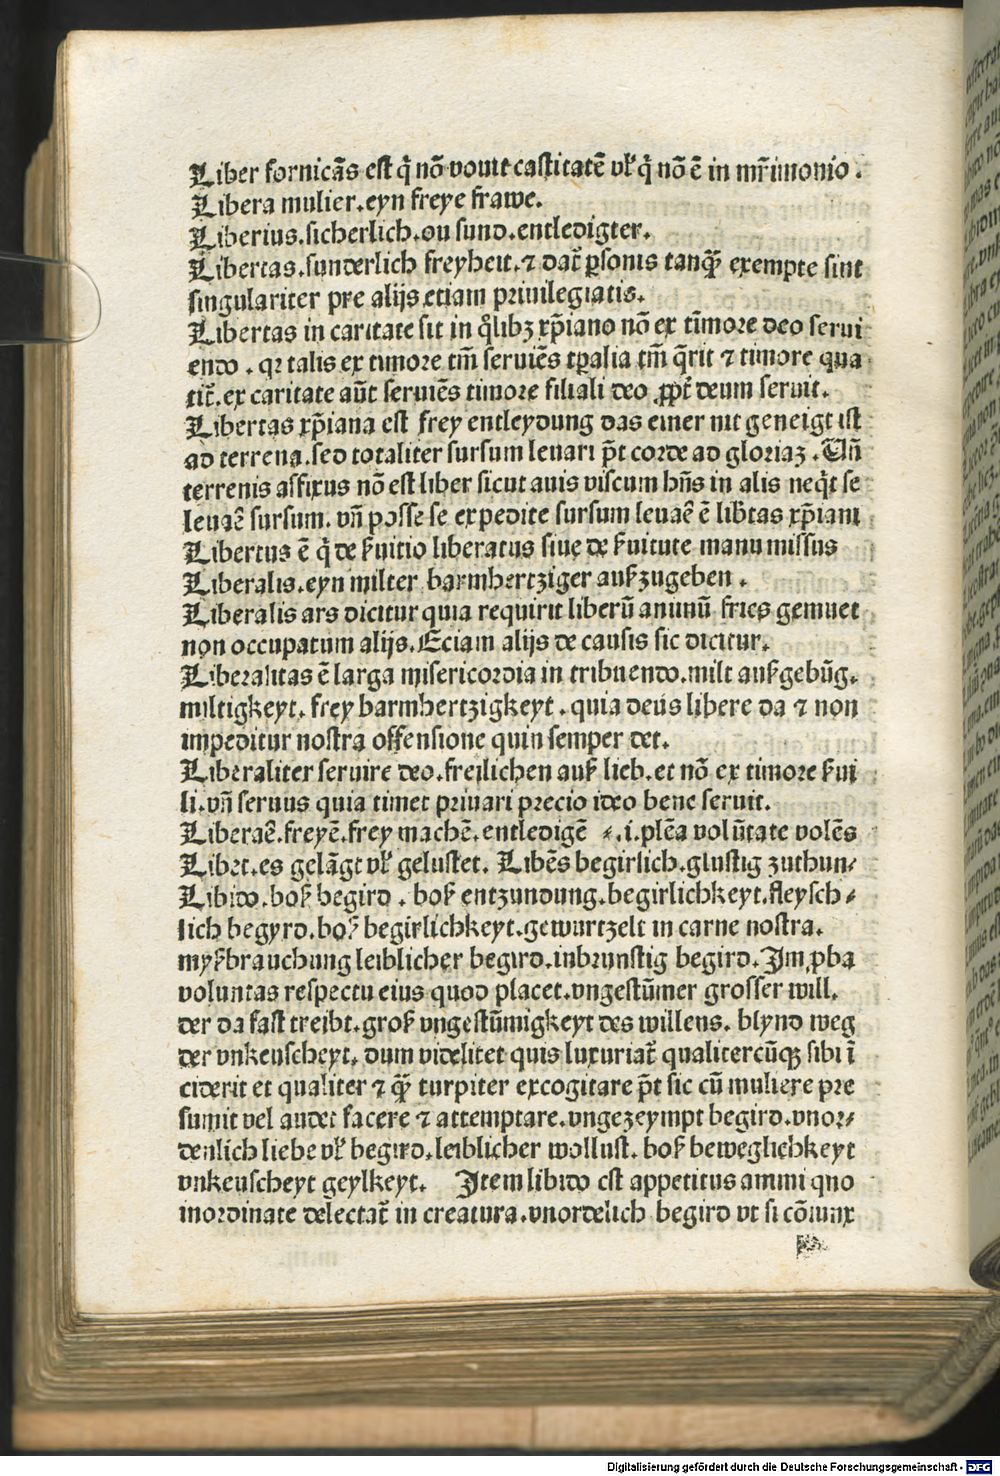 Liber fornicãs est q̃ nõ vouit castitatẽ vł q̃ nõ ẽ in mr̃imonio.
Libera mulier.eyn freye frawe.
Liberius.sicherlich.on sund.entledigter.
Libertas.sunderlich freyheit.⁊ dat̃ ꝑsonis tanq̃ȝ exempte sint
singulariter pre alijs etiam priuilegiatis.
Libertas in caritate sit in q̃libꝫ xp̃iano nõ ex timore deo serui
endo . qꝛ talis ex timore tm̃ seruiẽs tꝑalia tm̃ q̃rit ⁊ timore qua
tit̃. ex caritate aũt seruiẽs timore filiali deo ꝓpt̃ deum seruit.
Libertas xp̃iana est frey entleydung das einer nit geneigt ist
ad terrena.sed totaliter sursum leuari p̃t corde ad gloriaꝫ .Uñ
terrenis affixus nõ est liber sicut auis viscum hñs in alis neq̃t se
leuaẽ sursum. vñ posse se expedite sursum leuaẽ ẽ lib̃tas xp̃iani
Libertus ẽ q̃ de ß̃uitio liberatus siue de ß̃uitute manu missus
Liberalis.eyn milter barmhertziger außzugeben .
Liberalis ars dicitur quia requirit liberũ animũ fries gemuet
non occupatum alijs.Eciam alijs de causis sic dicitur.
Liberalitas ẽ larga misericordia in tribuendo.milt außgebũg.
miltigkeyt. frey barmhertzigkeyt . quia deus libere da ⁊ non
impeditur nostra offensione quin semper det.
Liberaliter seruire deo.freilichen auß lieb.et nõ ex timore ß̃ui
li.vñ seruus quia timet priuari precio ideo bene seruit.
Liberaẽ.freyẽ.frey machẽ.entledigẽ ⸗.i.plẽa volũtate volẽs
Libet.es gelãgt vł gelustet. Libẽs begirlich.glustig zuthun⸗
Libido.boß begird . boß entzundung.begirlichkeyt.fleysch⸗
lich begyrd.boß begirlichkeyt.gewurtzelt in carne nostra.
myßbrauchung leiblicher begird.inbrunstig begird.Im ꝓba
voluntas respectu eius quod placet.vngestũmer grosser will.
der da fast treibt.groß vngestũmigkeyt des willens. blynd weg
der vnkeuscheyt. dum videlitet quis luxuriat̃ qualitercũqȝ sibi ĩ
ciderit et qualiter ⁊ q̃ȝ turpiter excogitare p̃t sic cũ muliere pre
sumit vel audet facere ⁊ attemptare.vngezeympt begird.vnor⸗
denlich liebe vł begird.leiblicher wollust. boß beweglichkeyt
vnkeuscheyt geylkeyt. Item libido est appetitus animi quo
inordinate delectat̃ in creatura.vnordelich begird vt si cõiunx
Digitalisierung gefördert durch die Deutsche Forschungsgemeinschaft - DFG